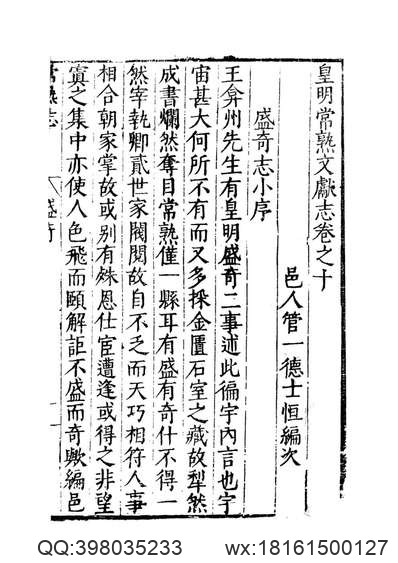 皇明常熟文獻志卷之十
邑人管一德士恒編次
盛奇志小序
王弇州先生有皇明盛奇二事述此徧宇內言也宇
宙甚大何所不有而又多採金匱石室之藏故犁然
成書爛然奪目常熟僅一縣耳有盛有奇什不得一
然宰執卿貳世家閥閱故自不乏而天巧相符人事
相合朝家掌故或别有殊恩仕宦遭逢或得之非望
寘之集中亦使人色飛而頤解詎不盛而奇歟編邑
常熟志
盛奇
一
QQ:398035233 wx:18161500127